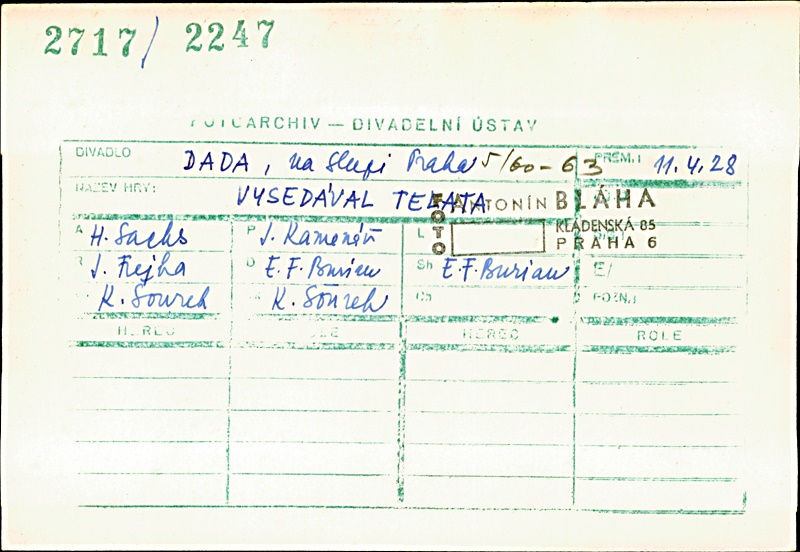 2717/ 2247
FOTOARCHIV — DIVADELNÍ ÚSTAV
DIVADLO DADA, na Slupi Praha 5/60-63 PREM.: 11.4.28
NÁZEV HRY: VYSEDÁVAL TELATA
FOTO ANTONÍN BLÁHA
KLADENSKÁ 85
PRAHA 6
A H. Sachs P J. Kameník L
R J. Frejka O E. F. Burian Sh E. F. Burian E/
K. Šourek K. Šourek Ch POZN.:
HEREC ROLE HEREC ROLE